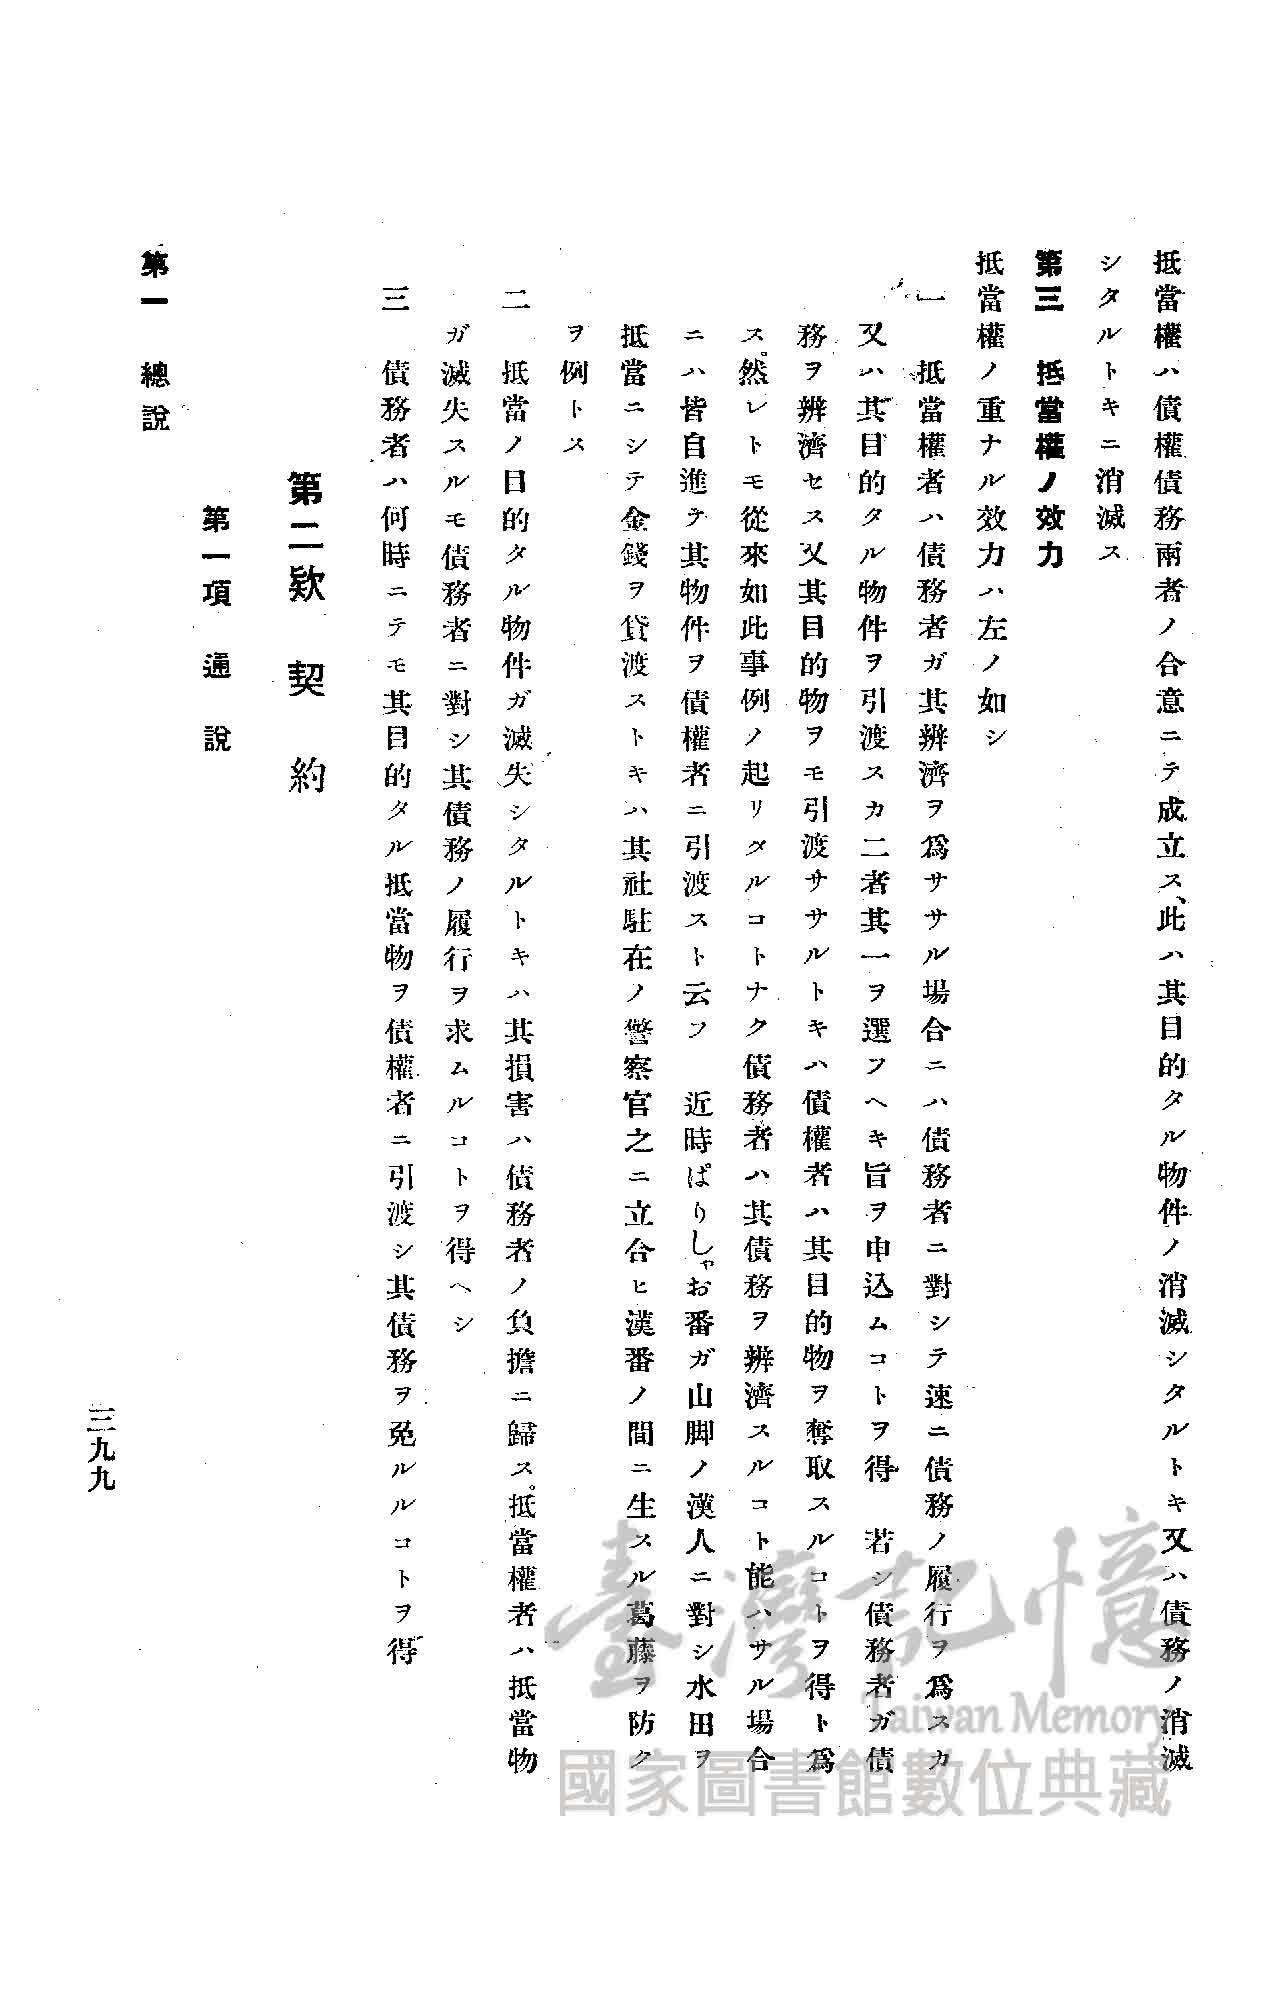 抵當權ハ債權債務兩者ノ合意ニテ成立ス、此ハ其目的タル物件ノ消滅シタルトキ又ハ債務ノ消滅
シタルトキニ消滅ス
第三　抵當權ノ效力
抵當權ノ重ナル效力ハ左ノ如シ
一　抵當權者ハ債務者ガ其辨濟ヲ爲ササル場合ニハ債務者ニ對シテ速ニ債務ノ履行ヲ爲スカ
又ハ其目的タル物件ヲ引渡スカ二者其一ヲ選フヘキ旨ヲ申込ムコトヲ得　若シ債務者ガ債
務ヲ辨濟セス又其目的物ヲモ引渡ササルトキハ債權者ハ其目的物ヲ奪取スルコトヲ得ト爲
ス。然レトモ從來如此事例ノ起リタルコトナク債務者ハ其債務ヲ辨濟スルコト能ハサル場合
ニハ皆自進テ其物件ヲ債權者ニ引渡スト云フ　近時ぱりしゃお番ガ山脚ノ漢人ニ對シ水田ヲ
抵當ニシテ金錢ヲ貸渡ストキハ其社駐在ノ警察官之ニ立合ヒ漢番ノ間ニ生スル葛藤ヲ防ク
ヲ例トス
二　抵當ノ目的タル物件ガ滅失シタルトキハ其損害ハ債務者ノ負擔ニ歸ス。抵當權者ハ抵當物
ガ滅失スルモ債務者ニ對シ其債務ノ履行ヲ求ムルコトヲ得ヘシ
三　債務者ハ何時ニテモ其目的タル抵當物ヲ債權者ニ引渡シ其債務ヲ免ルルコトヲ得
第二欵　契　約
第一項　通　說
第一　總說
三九九
臺灣記憶
Taiwan Memory
國家圖書館數位典藏